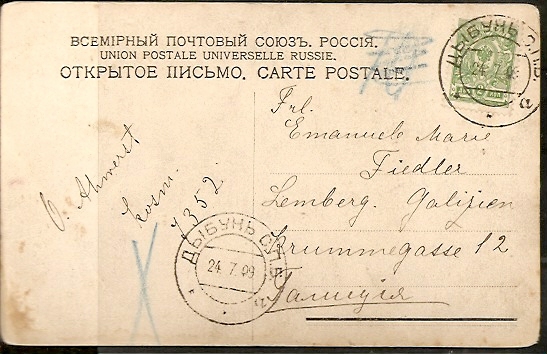 ВСЕМІРНЫЙ ПОЧТОВЫЙ СОЮЗЪ. РОССІЯ.
UNION POSTALE UNIVERSELLE RUSSIE.
ОТКРЫТОЕ ПИСЬМО. CARTE POSTALE.
ДЫБУНЬ С.П.Б.
24 09
а
Frl.
Emanuele Marie
Fiedler
Lemberg. Galizien
Krummegasse 12
Галиція
O. Ahmerst
kosm.
7352.
ДЫБУНЬ С.П.Б.
24.7.09
а